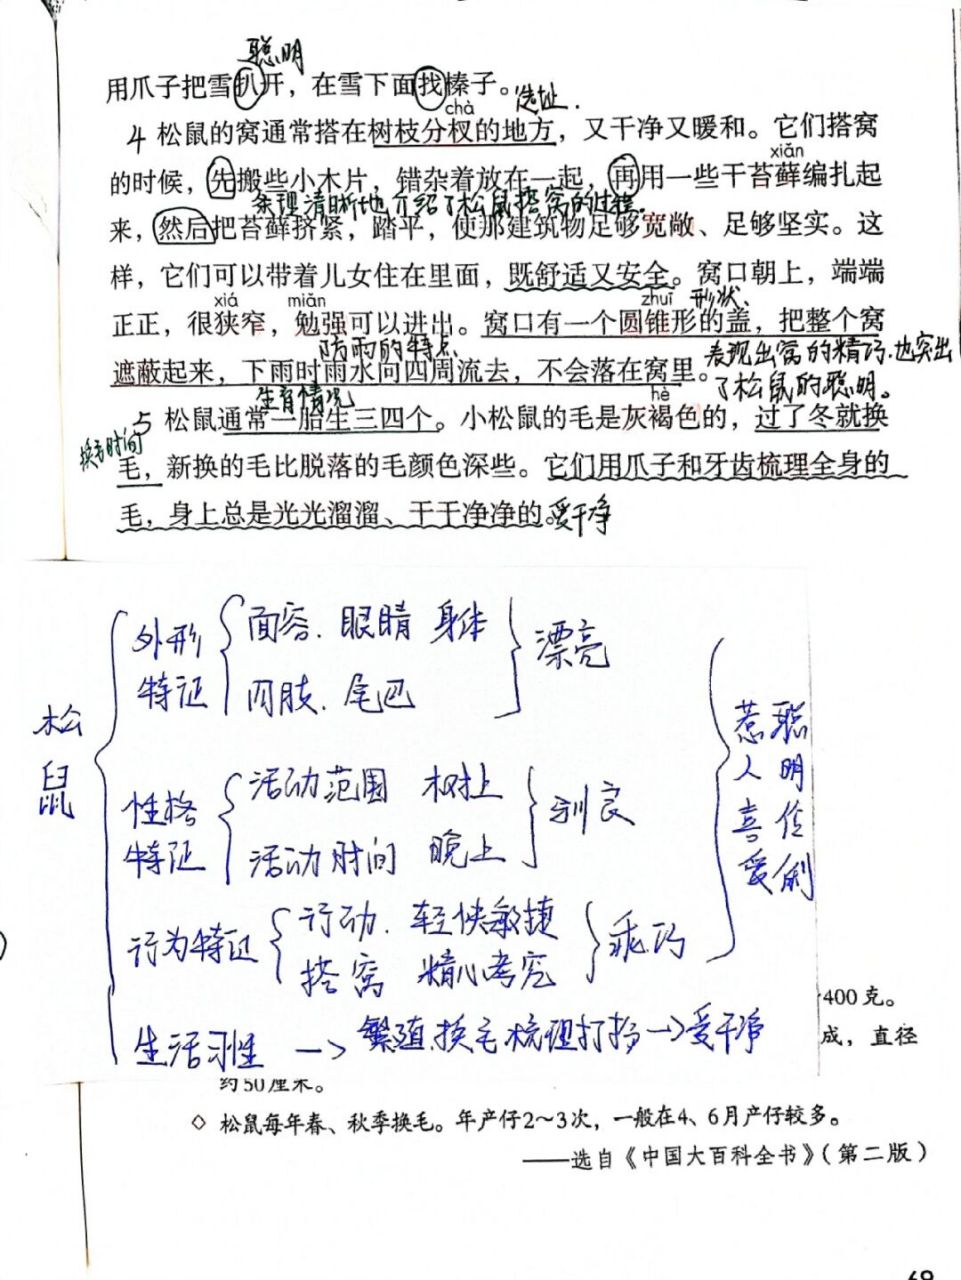 聪明
用爪子把雪扒开，在雪下面找榛子。
选址.
chà
4 松鼠的窝通常搭在树枝分杈的地方，又干净又暖和。它们搭窝
xiǎn
的时候，先搬些小木片，错杂着放在一起，再用一些干苔藓编扎起
条理清晰地介绍了松鼠搭窝的过程.
来，然后把苔藓挤紧，踏平，使那建筑物足够宽敞、足够坚实。这
样，它们可以带着儿女住在里面，既舒适又安全。窝口朝上，端端
xiá miǎn zhuī 形状、
正正，很狭窄，勉强可以进出。窝口有一个圆锥形的盖，把整个窝
防雨的特点
遮蔽起来，下雨时雨水向四周流去，不会落在窝里。
表现出窝的精巧.也突出
了松鼠的聪明。
生育情况 hè
5 松鼠通常一胎生三四个。小松鼠的毛是灰褐色的，过了冬就换
换毛时间
毛，新换的毛比脱落的毛颜色深些。它们用爪子和牙齿梳理全身的
毛，身上总是光光溜溜、干干净净的。爱干净
松鼠
外形特征
面容.眼睛 身体
四肢.尾巴
漂亮
性格特征
活动范围 树上
活动时间 晚上
驯良
行为特征
行动.轻快敏捷
搭窝 精心考究
乖巧
聪明伶俐
惹人喜爱
生活习性 → 繁殖.换毛梳理打扮→爱干净
400克。
成，直径
约50厘米。
◇ 松鼠每年春、秋季换毛。年产仔2～3次，一般在4、6月产仔较多。
——选自《中国大百科全书》（第二版）